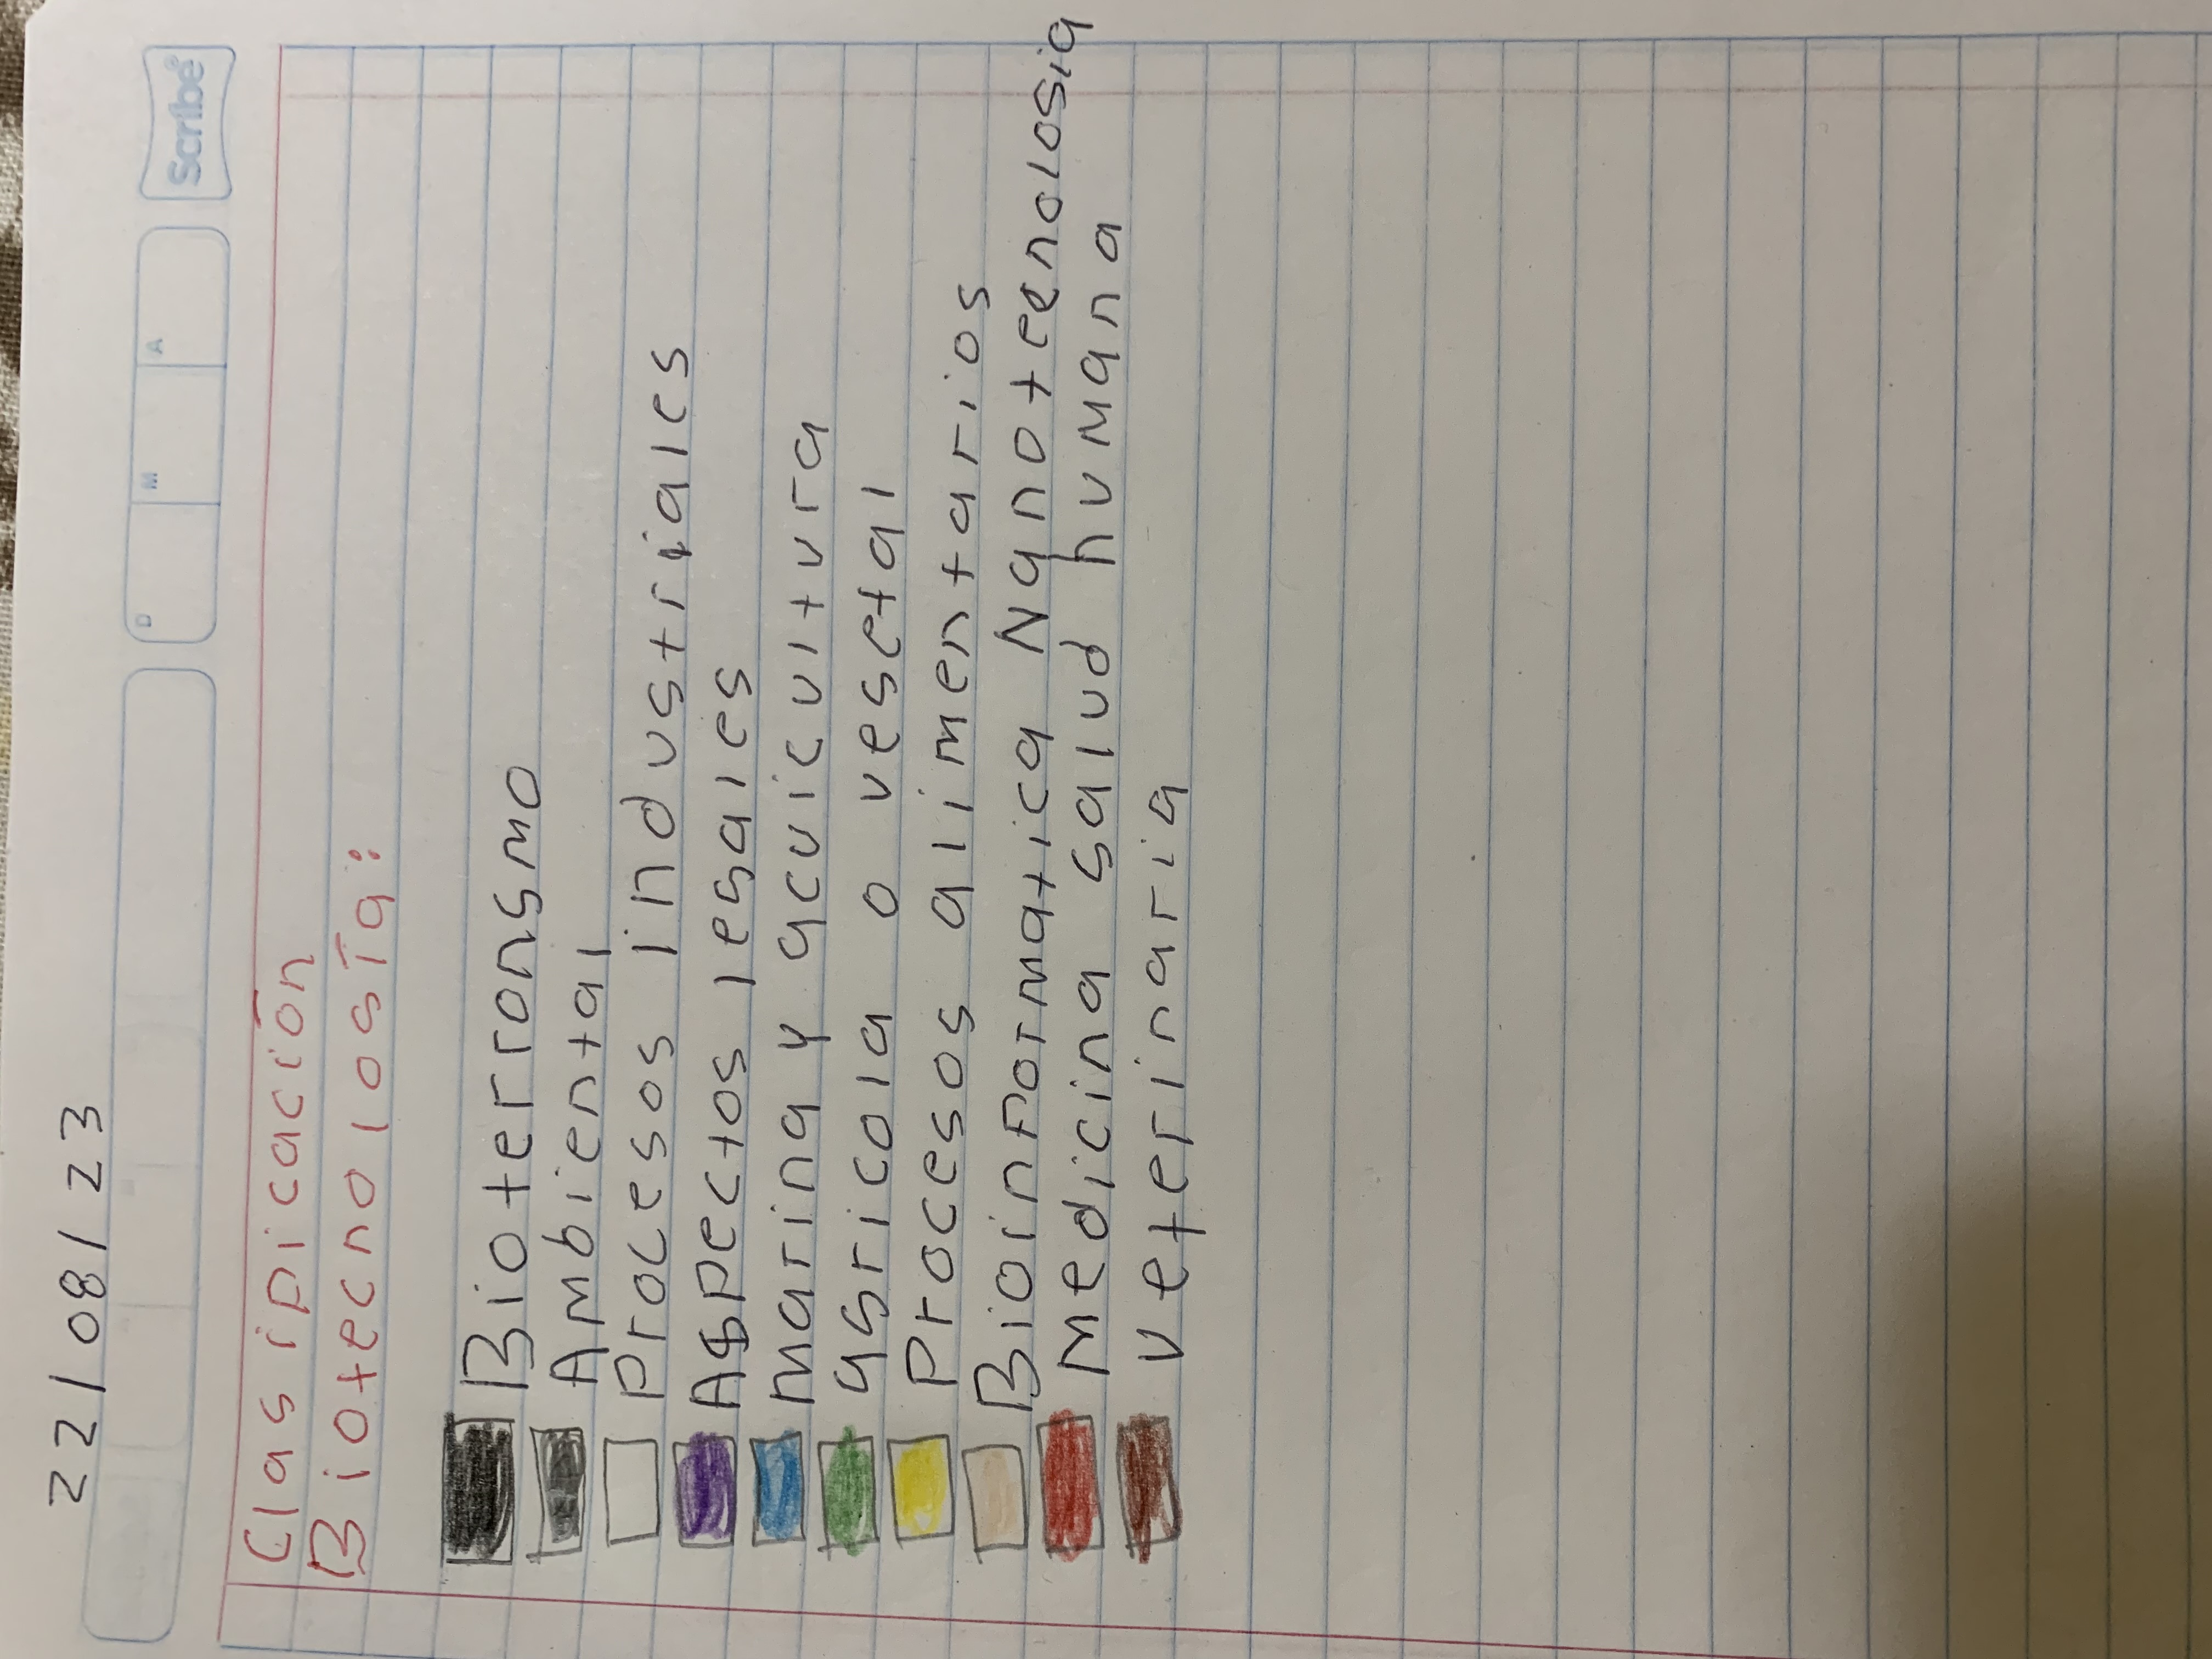 22/08/23
Scribe
D M A
Clasipicación
Biotecnología:
Bioterronsmo
Ambiental
Procesos industriales
Aspectos legales
marina y acuicultura
agricola o vegetal
Procesos alimentarios
Bioinformatica Nanoteenología
Medicina salud humana
veterinaria